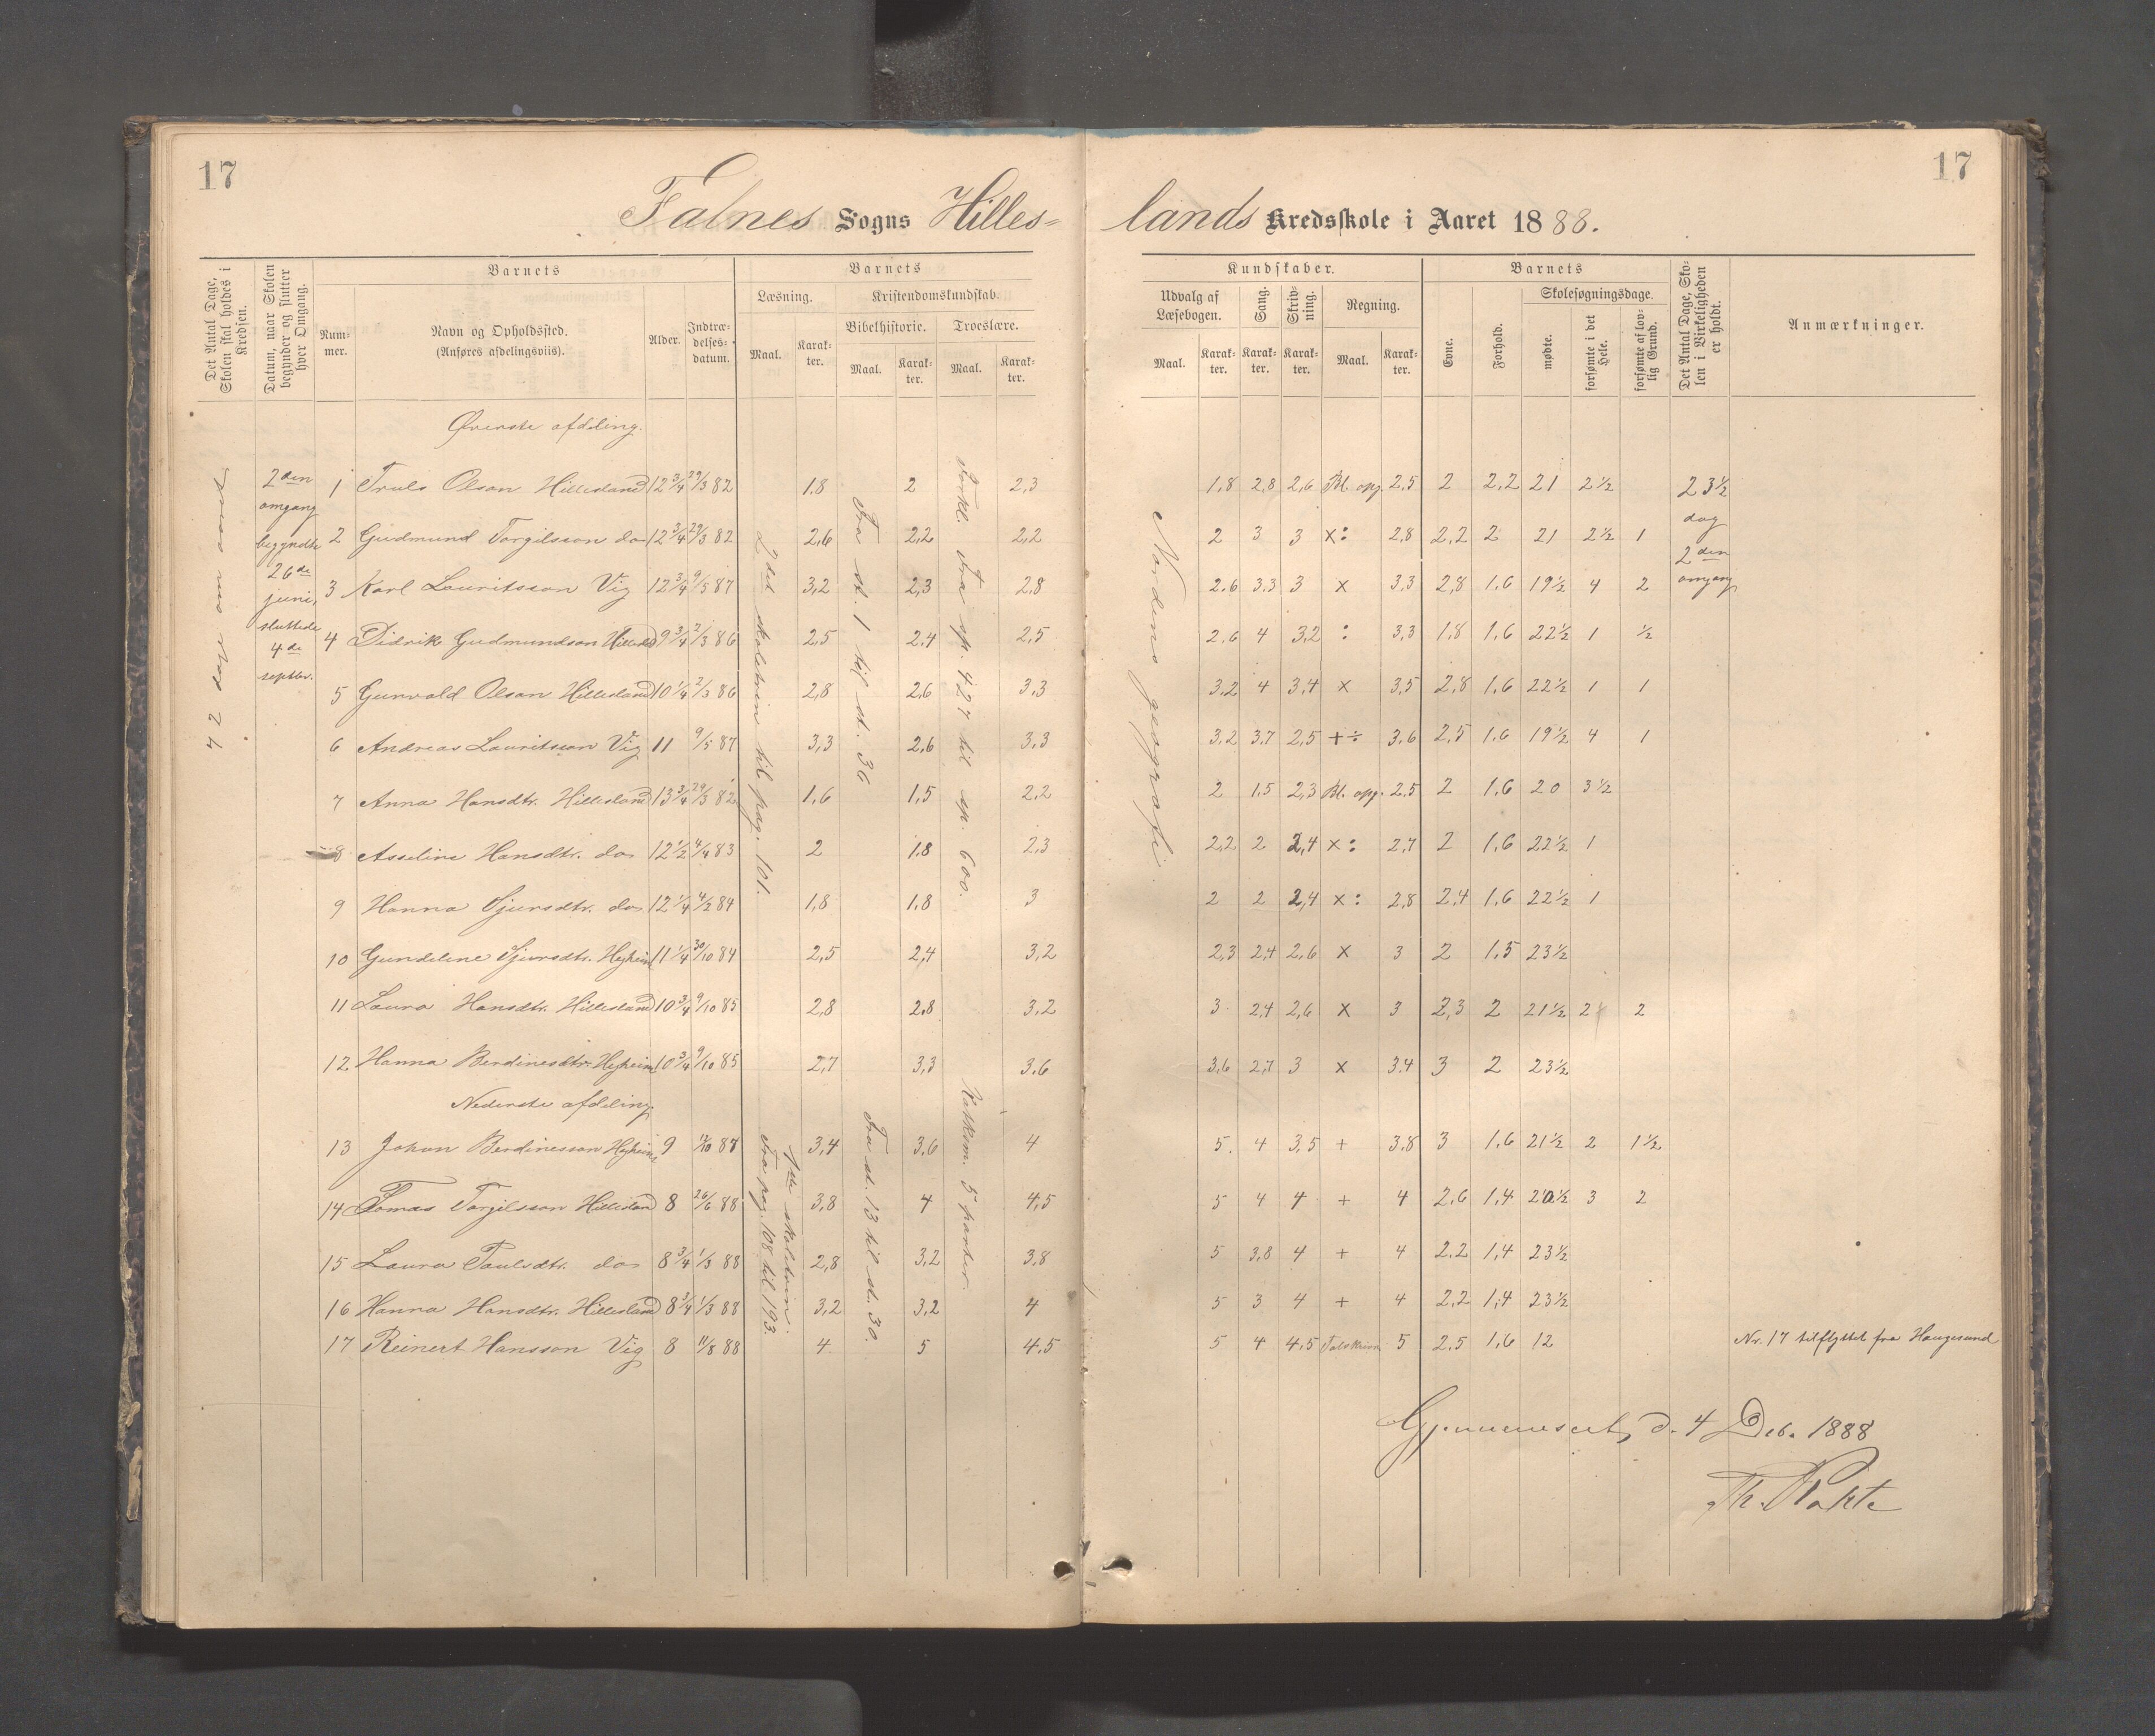 17
17
Falnes Sogns Hilles-
lands Kredsskole i Aaret 1888.
Det Antal Dage, Skolen skal holdes i Kredsen.
Datum, naar Skolen begynder og slutter hver Omgang.
Barnets
Nummer.
Navn og Opholdssted.
(Anføres afdelingsviis).
Alder.
Indtrædelsesdatum.
Barnets
Læsning.
Kristendomskundskab.
Bibelhistorie.
Troeslære.
Maal.
Karakter.
Maal.
Karakter.
Maal.
Karakter.
Kundskaber.
Udvalg af Læsebogen.
Sang.
Skrivning.
Regning.
Maal.
Karakter.
Karakter.
Karakter.
Maal.
Karakter.
Barnets
Evne.
Forhold.
Skolesøgningsdage.
mødte.
forsømte i det Hele.
forsømte af lovlig Grund.
Det Antal Dage, Skolen i Virkeligheden er holdt.
Anmærkninger.
Øverste afdeling.
2den omgang begyndte 26de juni, sluttede 4de septbr.
2det skoletrin til pag. 101.
Fra st. 1 til st. 36
Forkl. fra sp. 427 til sp. 600.
Nordens geografi.
23½ dag 2den omgang
1 Truls Olson Hillesland 12¾ 29/3 82 1.8 2 2,3 1,8 2,8 2,6 Bl. opg. 2,5 2 2,2 21 2½
2 Gudmund Torgilsson do 12¾ 29/3 82 2,6 2,2 2,2 2 3 3 x: 2,8 2,2 2 21 2½ 1
3 Karl Lauritsson Vig 12¾ 9/5 87 3,2 2,3 2,8 2.6 3.3 3 x 3,3 2,8 1.6 19½ 4 2
4 Didrik Gudmundson Hillesld 9¾ 2/3 86 2,5 2.4 2,5 2.6 4 3,2 : 3,3 1,8 1,6 22½ 1 ½
5 Gunvald Olson Hillesland 10¼ 2/3 86 2,8 2,6 3,3 3,2 4 3,4 x 3,5 2,8 1,6 22½ 1 1
6 Andreas Lauritsson Vig 11 9/5 87 3,3 2,6 3,3 3,2 3,7 2,5 +÷ 3,6 2,5 1.6 19½ 4 1
7 Anna Hansdtr. Hillesland 13¾ 29/3 82 1,6 1,5 2,2 2 1.5 2,3 Bl. opg. 2,5 2 1,6 20 3½
8 Asseline Hansdtr. do 12½ 4/4 83 2 1.8 2,3 2,2 2 2,4 x: 2,7 2 1,6 22½ 1
9 Hanna Sjursdtr. do 12¼ 4/2 84 1,8 1,8 3 2 2 2,4 x: 2,8 2,4 1,6 22½ 1
10 Gundeline Sjursdtr. Højheim 11¼ 30/10 84 2,5 2,4 3,2 2,3 2,4 2,6 x 3 2 1,5 23½
11 Laura Hansdtr. Hillesland 10¾ 9/10 85 2,8 2.8 3,2 3 2,4 2,6 x 3 2,3 2 21½ 2 2
12 Hanna Berdinesdtr. Højheim 10¾ 9/10 85 2,7 3,3 3.6 3,6 2,7 3 x 3,4 3 2 23½
Nederste afdeling.
1ste skoletrin.
Fra pag. 108 til 193.
Fra st. 13 til st. 30.
Katkism. 5 parter.
13 Johan Berdinesson Højheim 9 87 3,4 3.6 4 5. 4 3,5 + 3,8 3 1.6 21½ 2 1½
14 Tomas Torgilsson Hillesland 8 26/6 88 3,8 4 4,5 5 4 4 + 4 2,6 1,4 20½ 3 2
15 Laura Paulsdtr. do 8¾ 1/3 88 2,8 3,2 3,8 5 3,8 4 + 4 2.2 1,4 23½
16 Hanna Hansdtr. Hillesland 8¾ 1/3 88 3,2 3,2 4 5 3 4 + 4 2,2 1,4 23½
17 Reinert Hansson Vig 8 11/8 88 4 5 4.5 5 4 4,5 5 2.5 1,6 12 Nr. 17 tilflyttet fra Haugesund
Gjennemseet, d. 4 Dec. 1888